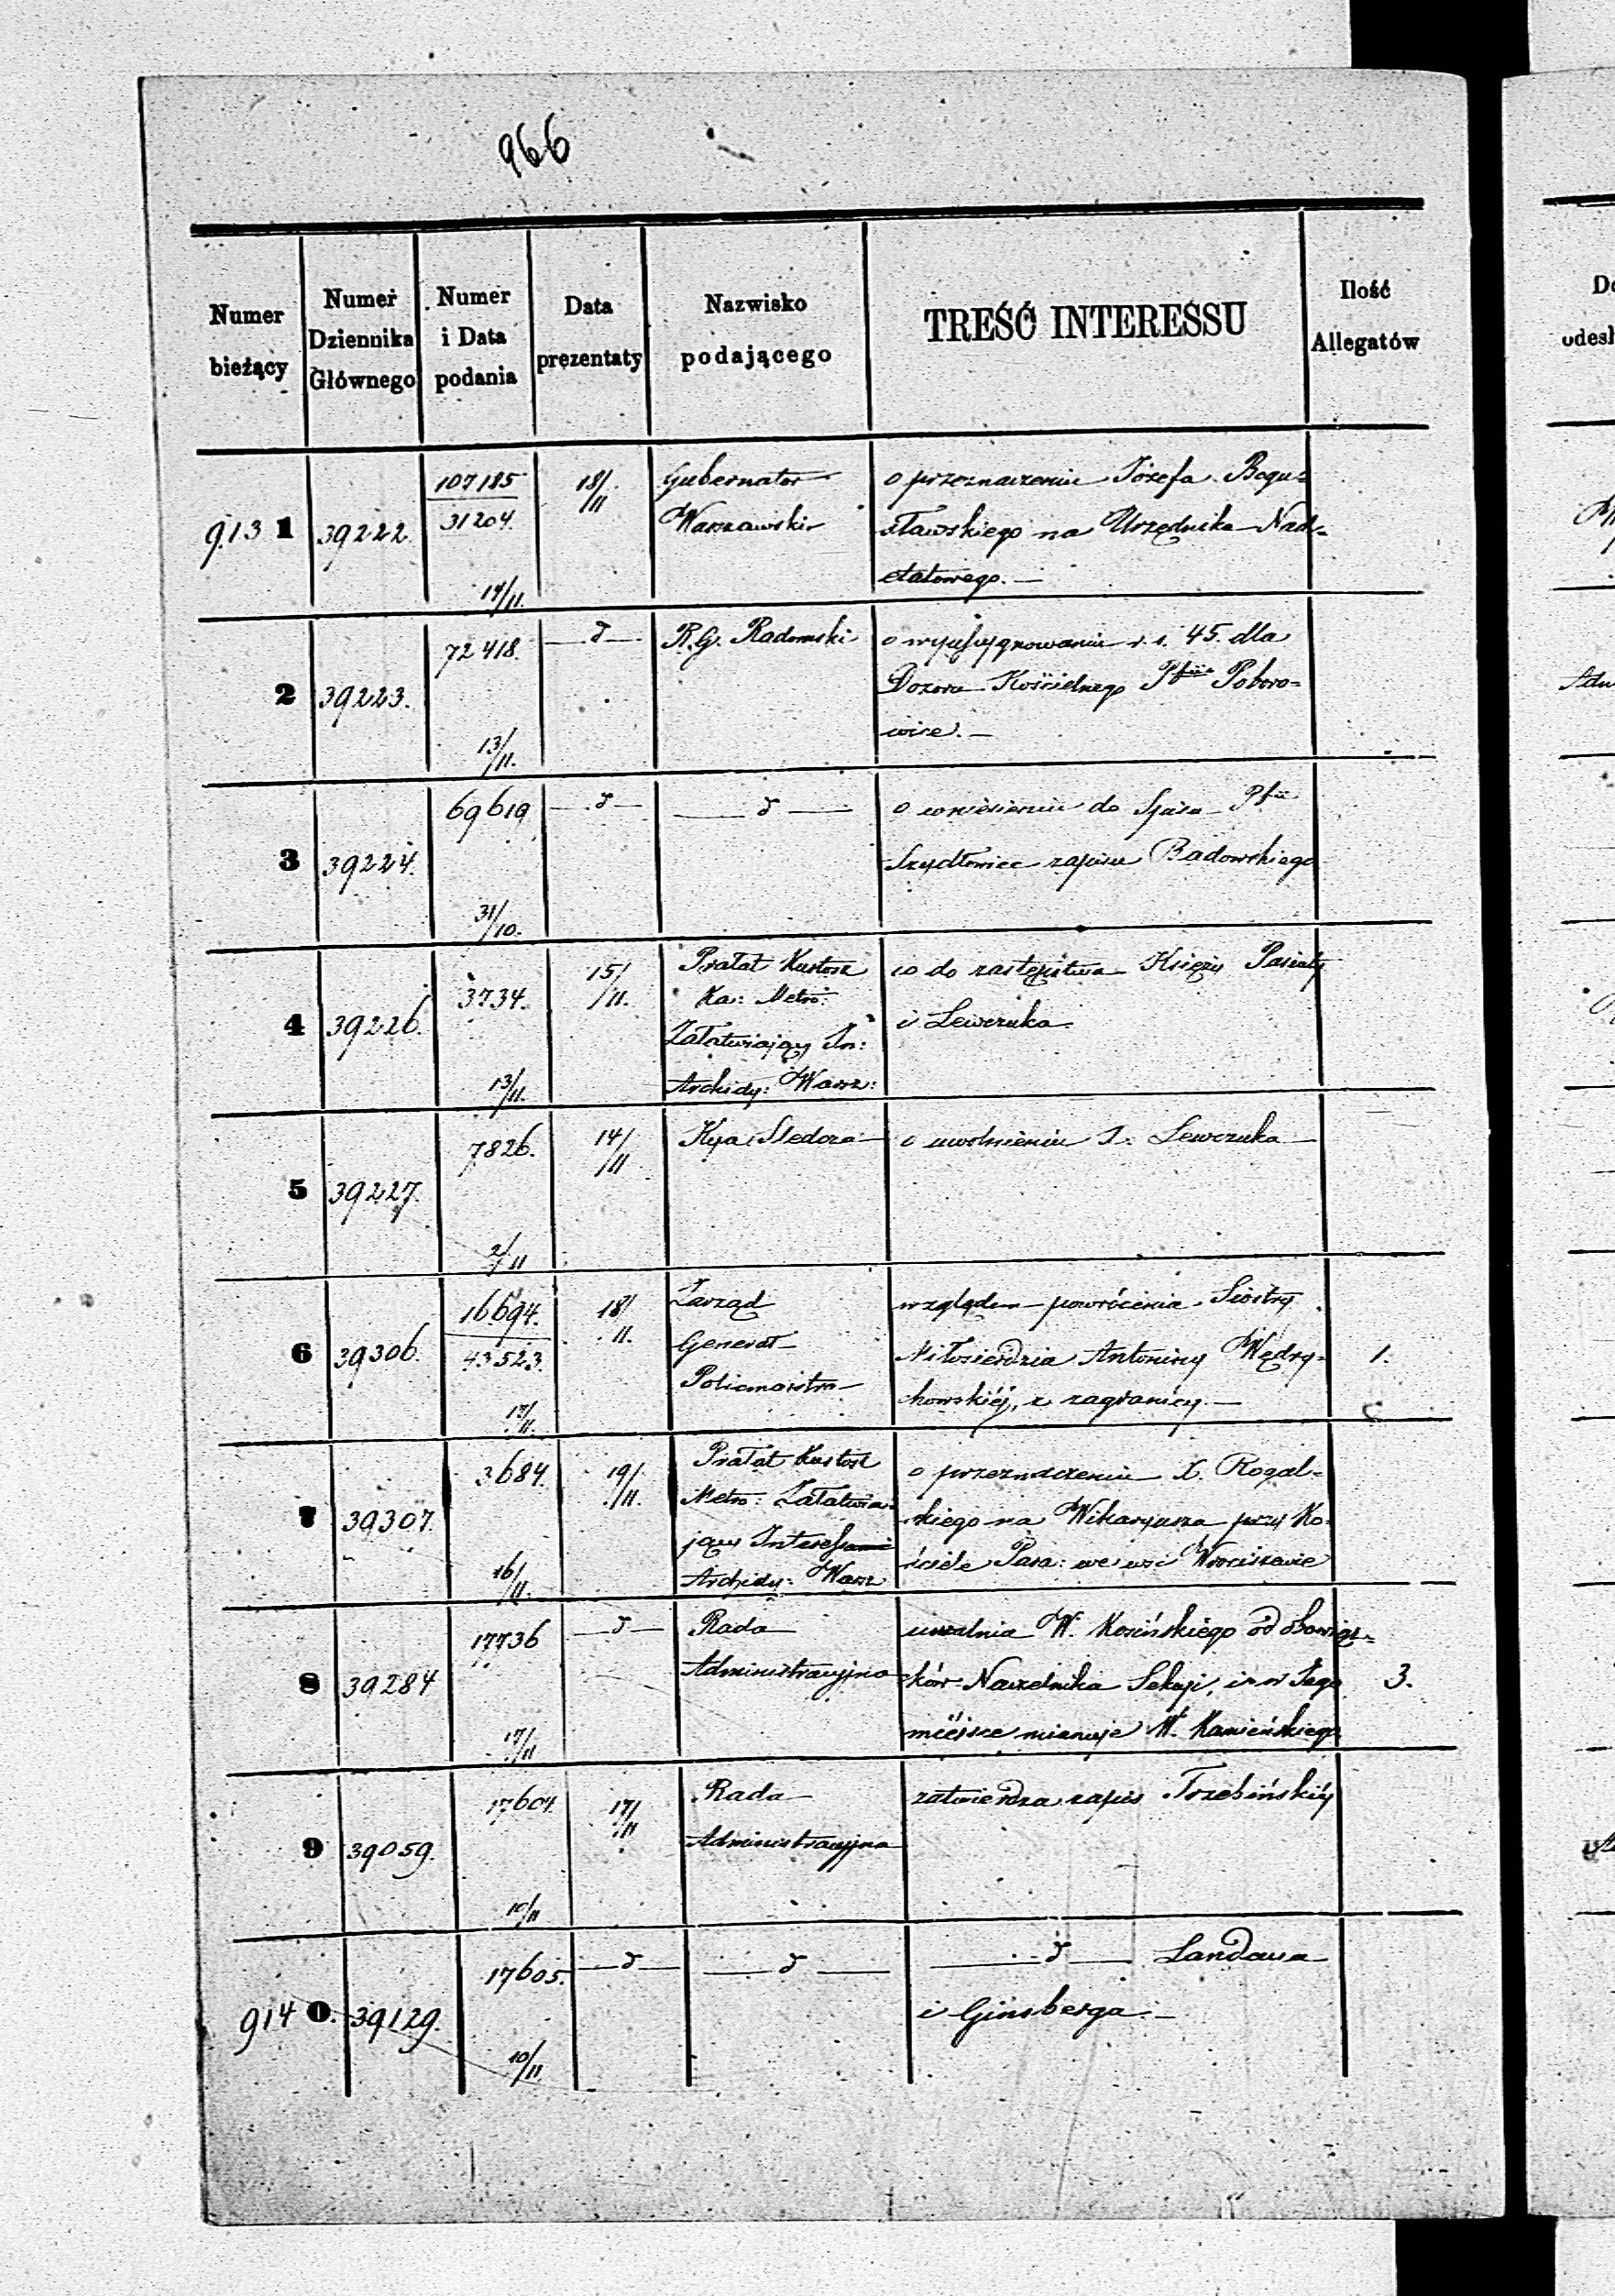 966
Numer bieżący
Numer Dziennika Głównego
Numer i Data podania
Data prezentaty
Nazwisko podającego
TREŚĆ INTERESSU
Ilość Allegatów
913 1 39222. 107185 31204. 17/11. 18/11 Gubernator o przeznaczeniu Józefa Bogu=
Warszawski sławskiego na Urzędnika Nad=
etatowego. —
2 39223. 72418. 13/11. — d — R. G. Radomski o wyassygnowaniu r. s. 45. dla
Dozoru Kościelnego Pfii Poboro=
wice. —
3 39224. 69619 31/10. — d — — d — o wniesieniu do Spisu Pfii
Szydłowiec zapisu Badowskiego
4 39226. 3734. 13/11. 15/11. Prałat Kustosz co do zastępstwa Księży
Ka: Metro: i Lewczuka
Załatwiający In:
Archidy: Warsz:
5 39227. 7826. 2/11 14/11 Kya Sledcza o uwolnieniu Lewczuka —
6 39306. 16694. 43523. 17/11. 18/11. Zarząd względem powrócenia Siostry
Generał Miłosierdzia Antoniny Wędry= 1.
Policmajstra chowskiéj, z zagranicy. —
7 39307. 3684. 16/11. 19/11. Prałat Kustosz o przeznaczeniu X. Rogal=
Metro: Załatwia= skiego na Wikaryusza przy Ko=
jący Interessami ściele Para: we wsi Wrociszewie
Archidy: Warsz
8 39284 17736 17/11 — d — Rada uwalnia W. Kosińskiego od obowiąz=
Administracyjna ków Naczelnika Sekcyi, i w Jego 3.
miéjsce mianuje W. Kamieńskiego
9 39059. 17604. 10/11 17/11 Rada zatwierdza zapis Trzebińskiéj
Administracyjna
914 0. 39129. 17605. 10/11. — d — — d — — d — Landaua
i Ginsberga. —